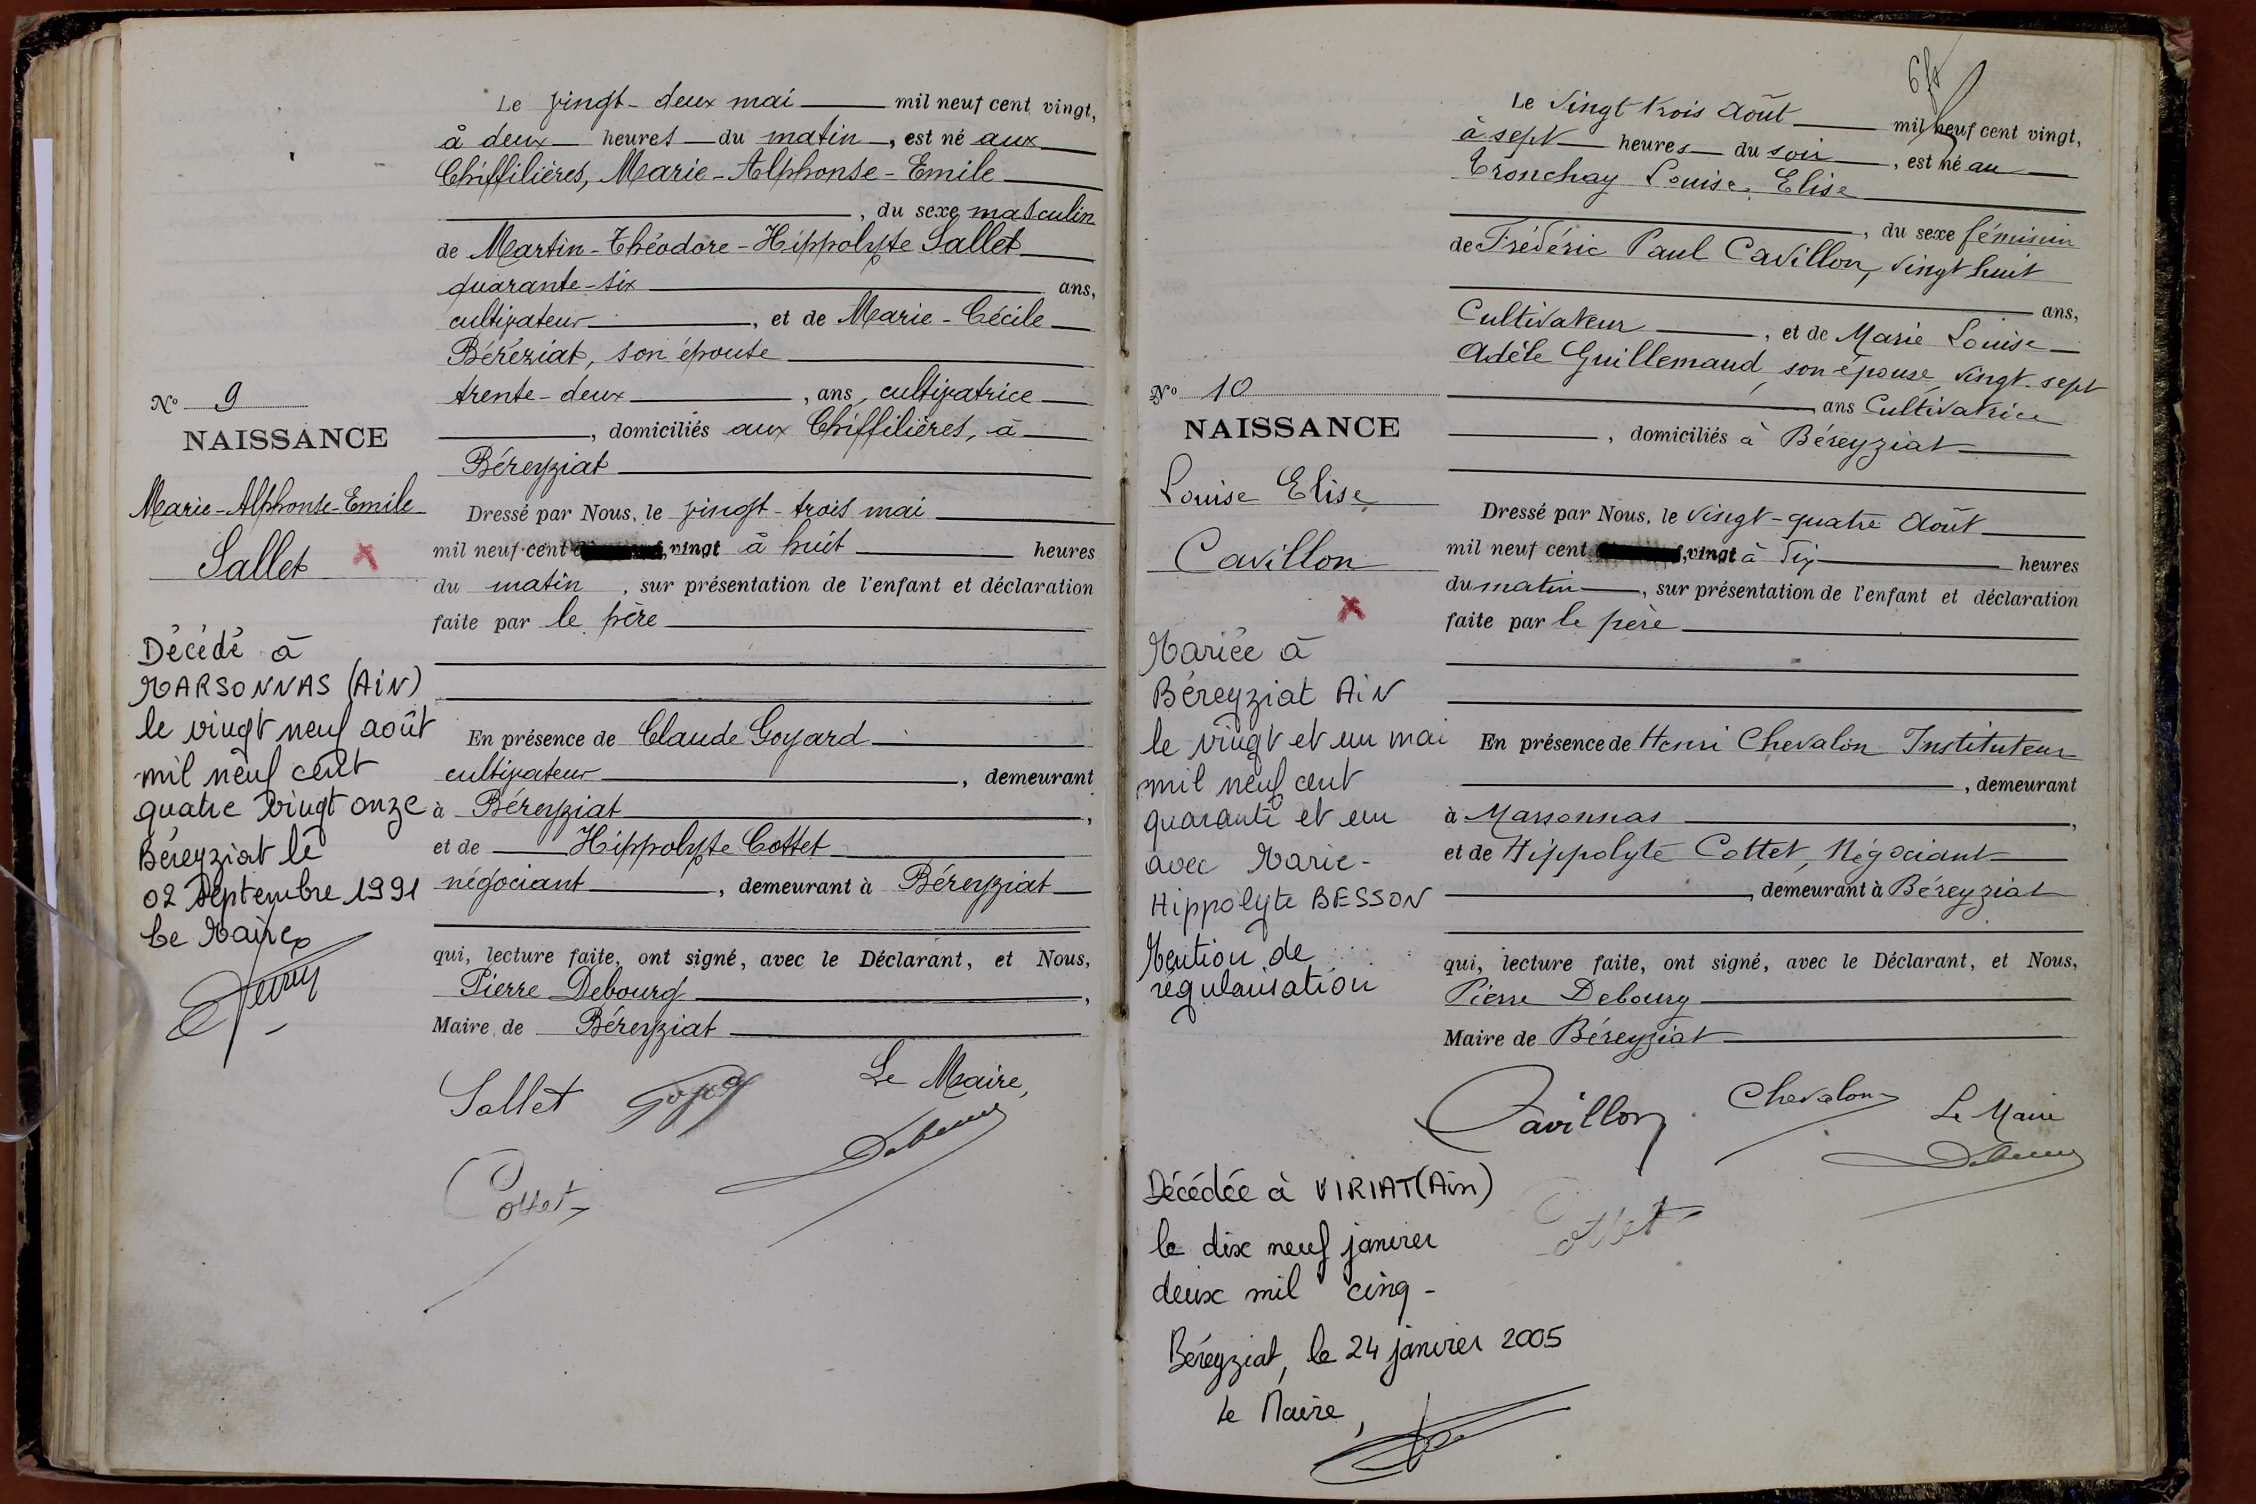 Le vingt-deux mai mil neuf cent vingt,
à deux heures du matin, est né aux
Chiffilières, Marie-Alphonse-Emile
, du sexe masculin
de Martin-Théodore-Hippolyte Sallet
quarante-six ans,
cultivateur, et de Marie-Cécile
Béréziat, son épouse
trente-deux, ans, cultivatrice
, domiciliés aux Chiffilières, à
Béreyziat
Dressé par Nous, le vingt-trois mai
mil neuf cent vingt à huit heures
du matin, sur présentation de l'enfant et déclaration
faite par le père
En présence de Claude Goyard
cultivateur, demeurant
à Béreyziat,
et de Hippolyte Cottet
négociant, demeurant à Béreyziat
qui, lecture faite, ont signé, avec le Déclarant, et Nous,
Pierre Debourg,
Maire de Béreyziat
Sallet
Le Maire,
Cottet
N° 9
NAISSANCE
Marie-Alphonse-Emile
Sallet
Décédé à
MARSONNAS (AIN)
le vingt neuf août
mil neuf cent
quatre vingt onze
Béreyziat le
02 septembre 1991
Le Maire
Le vingt trois Août mil neuf cent vingt,
à sept heures du soir, est né au
Tronchay Louise, Elise
, du sexe féminin
de Frédéric Paul Cavillon, vingt huit
ans,
Cultivateur, et de Marie Louise
Adèle Guillemaud son épouse, vingt-sept
ans Cultivatrice
, domiciliés à Béreyziat
Dressé par Nous, le vingt-quatre Août
mil neuf cent vingt à six heures
du matin, sur présentation de l'enfant et déclaration
faite par le père
En présence de Henri Chevalon Instituteur
, demeurant
à Marsonnas,
et de Hippolyte Cottet, Négociant
, demeurant à Béreyziat
qui, lecture faite, ont signé, avec le Déclarant, et Nous,
Pierre Debourg
Maire de Béreyziat
Cavillon Chevalon Le Maire
Cottet
N° 10
NAISSANCE
Louise Elise
Cavillon
Mariée à
Béreyziat AIN
le vingt et un mai
mil neuf cent
quarante et un
avec Marie-
Hippolyte BESSON
Mention de
régularisation
Décédée à VIRIAT (Ain)
le dix neuf janvier
deux mil cinq -
Béreyziat, le 24 janvier 2005
Le Maire,